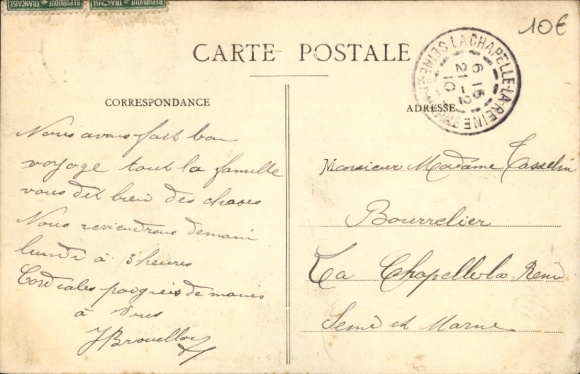 REPUBLIQUE FRANÇAISE REPUBLIQUE FRANÇAISE
10€
CARTE POSTALE
LA CHAPELLE-LA-REINE SEINE-ET-MARNE
6 15
21-2
10
CORRESPONDANCE
ADRESSE
Nous avons fait bon
voyage tout la famille
vous dit bien des choses
Nous reviendrons demain
lundi à 5 heures
Cordiales poignées de mains
à tous
J Brouillou
Monsieur Madame Tasselin
Bourrelier
La Chapelle la Reine
Seine et Marne